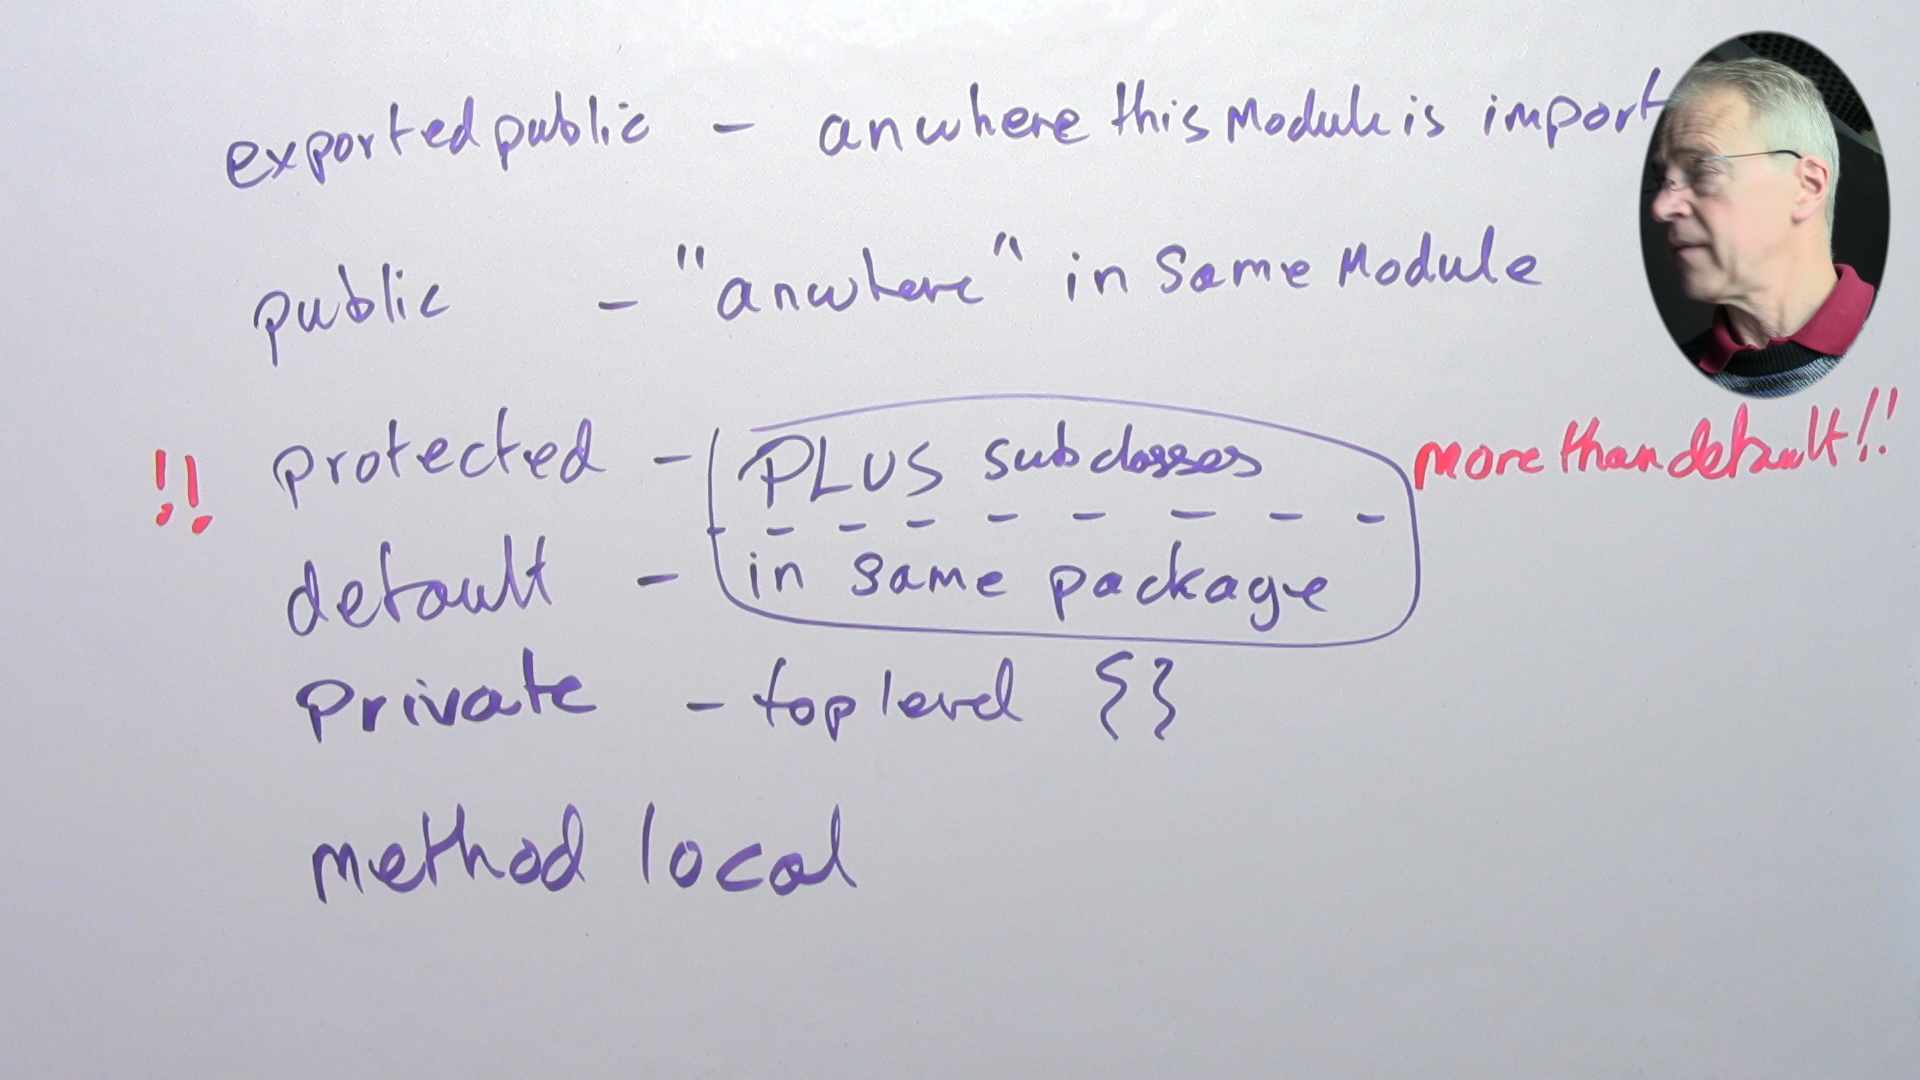 exported public - anwhere this Module is import
public - "anwhere" in Same Module
!! protected - PLUS subclasses more than default!!
default - in same package
Private - top level {}
method local